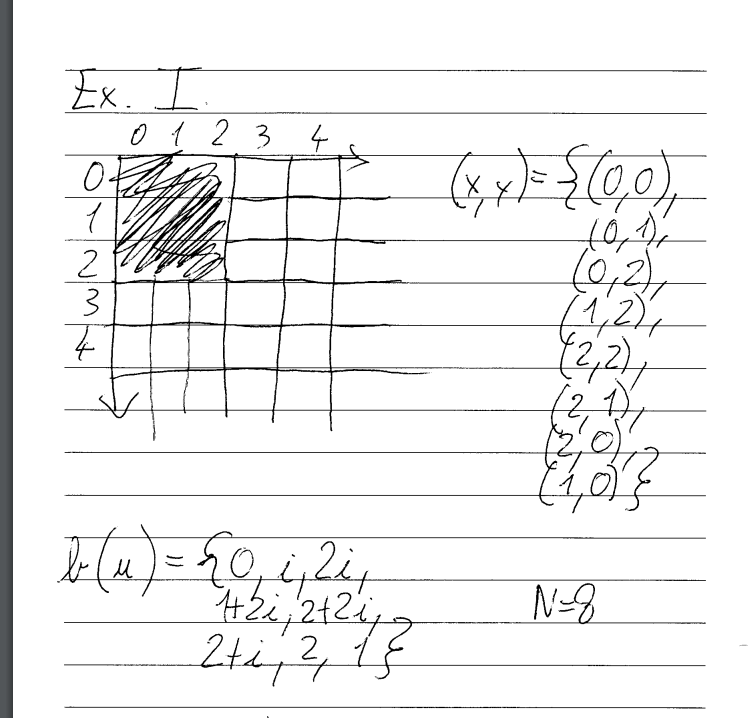 Ex. I.
0 1 2 3 4
0
1
2
3
4
(x,y)={(0,0),
(0,1),
(0,2),
(1,2),
(2,2),
(2,1),
(2,0),
(1,0)}
b(u)={0, i, 2i,
1+2i, 2+2i,
2+i, 2, 1}
N=8